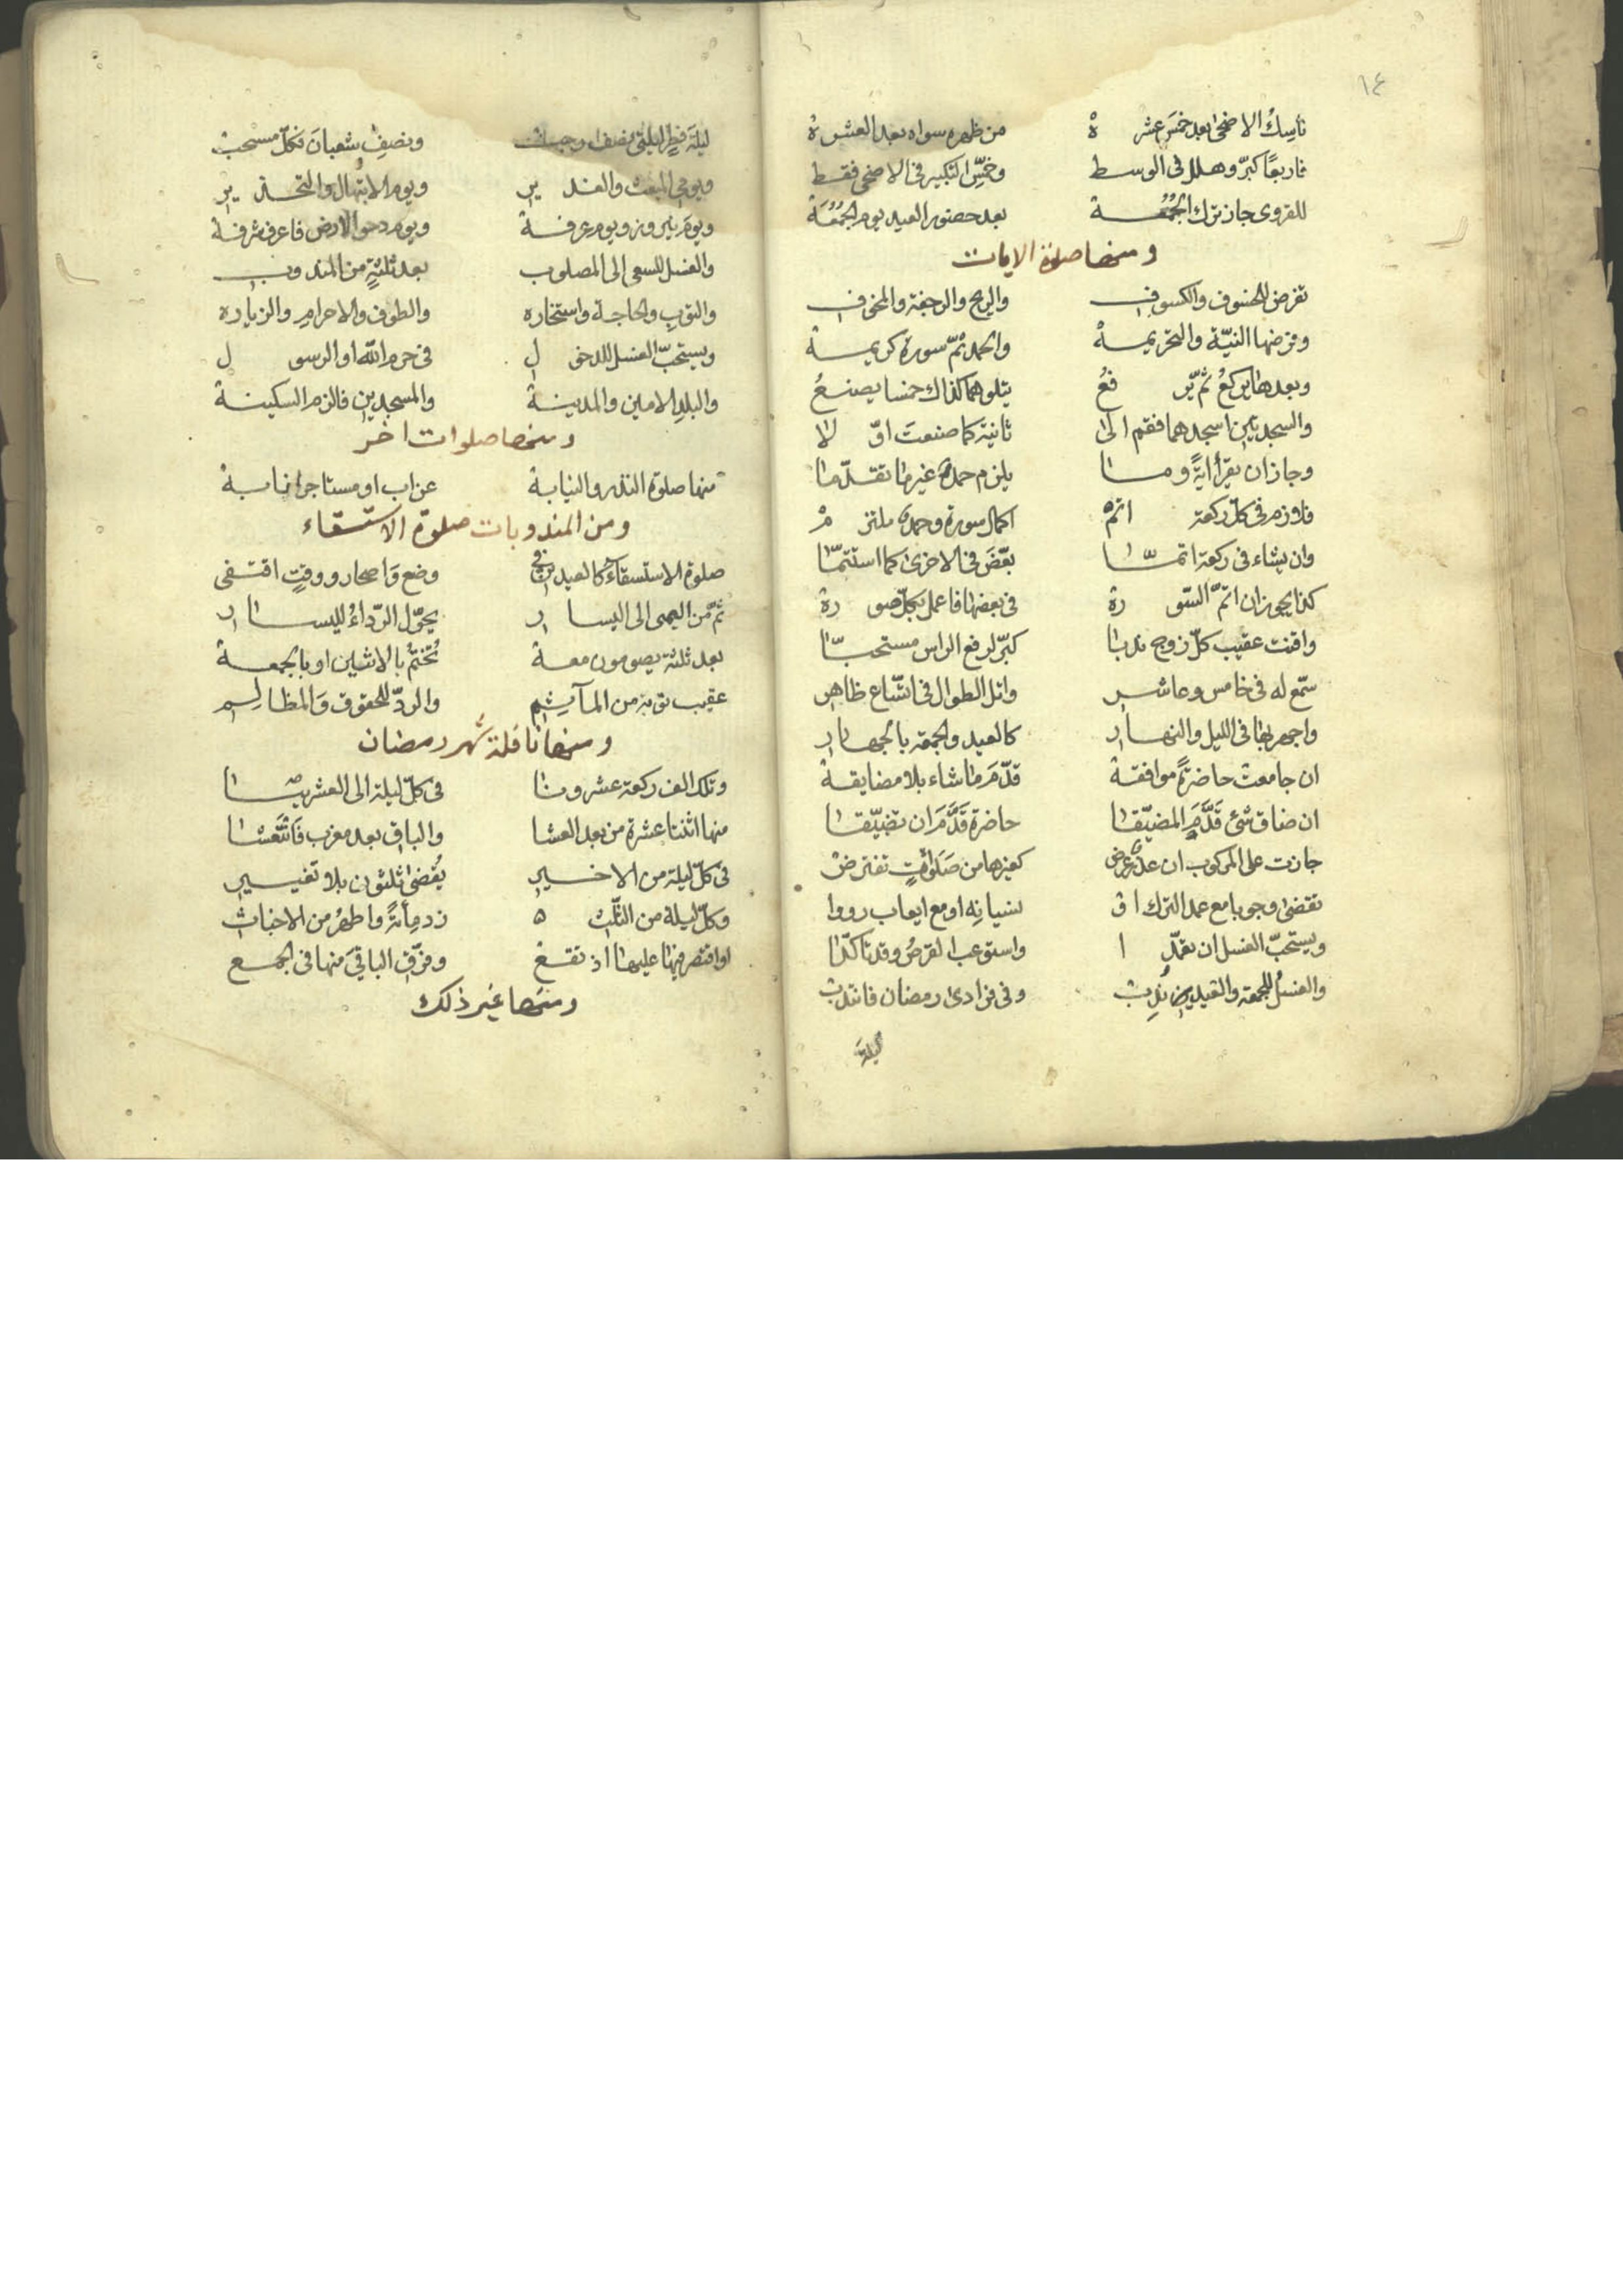 ١٤
ناسك الاضحى بعد خمس عشرة من ظهره سواه بعد العشرة
فاربعًا كبّر وهلل فى الوسط وخمّس التكبير فى الاضحى فقط
للقروى جاز ترك الجُمُعة بعد حضور العيد يوم الجُمُعَة
ومنها صلوة الايات
تفرض للخسوف والكسوف والريح والرجفة والمخوف
وفرضها النيّة والتحريمة والحمد ثمّ سورة كريمة
وبعدها يركعُ ثمّ يرفعُ يتلوهما كذاك خمسا يصنعُ
والسجدتين اسجدهما فقم الى ثانية كما صنعتَ اوّلا
وجاز ان يقرأ ايةً وما يلزم حمد غير ما تقدّما
فلازم فى كلّ ركعة اتم اكمال سورة وحمد ملتزم
وان يشاء فى ركعة اتمّا بعّضَ فى الاخرى كما استتمّا
كذا يجوز ان اتمّ السّورة فى بعضها فاعمل بكلّ صورة
واقنت عقيب كلّ زوج ندبا كبّر لرفع الراس مستحبّا
سمّع له فى خامس وعاشر واتل الطوال فى اتّساع ظاهر
واجهر بها فى الليل والنهار كالعيد والجمعة بالجهار
ان جامعت حاضرةً موافقة قدّم ما شاء بلا مضايقة
ان ضاق شئ قَدَّمَ المضيّقا حاضرة قَدَّمَ ان تضيّقا
جازت على المركوب ان عذر عرض كغيرها من صَلَواتٍ تفترض
تقضى وجوبا مع عمد الترك او نسيانه او مع ايعاب رووا
ويستحبّ الغسل ان تعمّدا واستوعب القرصُ وقد تاكّدا
والغسلُ للجمعة والعيدين نُدِب وفى فرادى رمضان فانتدب
ليلة
ليلةَ فطرٍ ليلتى نصف رجب ونصفِ شعبانَ فكلّ مستحب
ويومى المبعث والغدير ويوم الابتهال والتحذير
ويوم نيروز ويوم عرفة ويوم دحو الارض فاعرف شرفة
والغسل للسعى الى المصلوب بعد ثلثةٍ من المندوب
والتوبِ والحاجة واستخاره والطوف والاحرام والزياره
ويستحبّ الغسل للدخول فى حرم اللّه او الرسول
والبلدِ الامين والمدينة والمسجدين فالزم السكينة
ومنها صلوات اخر
منها صلوة النذر والنيابة عن اب او مستاجرا نابة
ومن المندوبات صلوة الاستسقاء
صلوة الاستسقاء كالعيد وضع واصحار ووقتٍ اقتفى
ثمّ من اليمنى الى اليسار يحوّل الرّداءُ لليسار
بعد ثلثة يصومون معة تُختمُ بالاثنين او بالجمعة
عقيب توبة من المآثِم والردّ للحقوق وَالمظالِم
ومنها نافلة شهر رمضان
وتلك الف ركعة عشرونا فى كلّ ليلة الى العشرينا
منها اثنتا عشرة من بعد العشا والباق بعد مغرب
فى كلّ ليلة من الاخير يُقضى ثلثون بلا تغيير
وكلّ ليلة من الثلث زد مِأئةً واطهرُ من الاخباث
او اقتصر فيها عليها اذ تقع وفرّق الباقىَ منها فى الجمع
ومنها غير ذلك